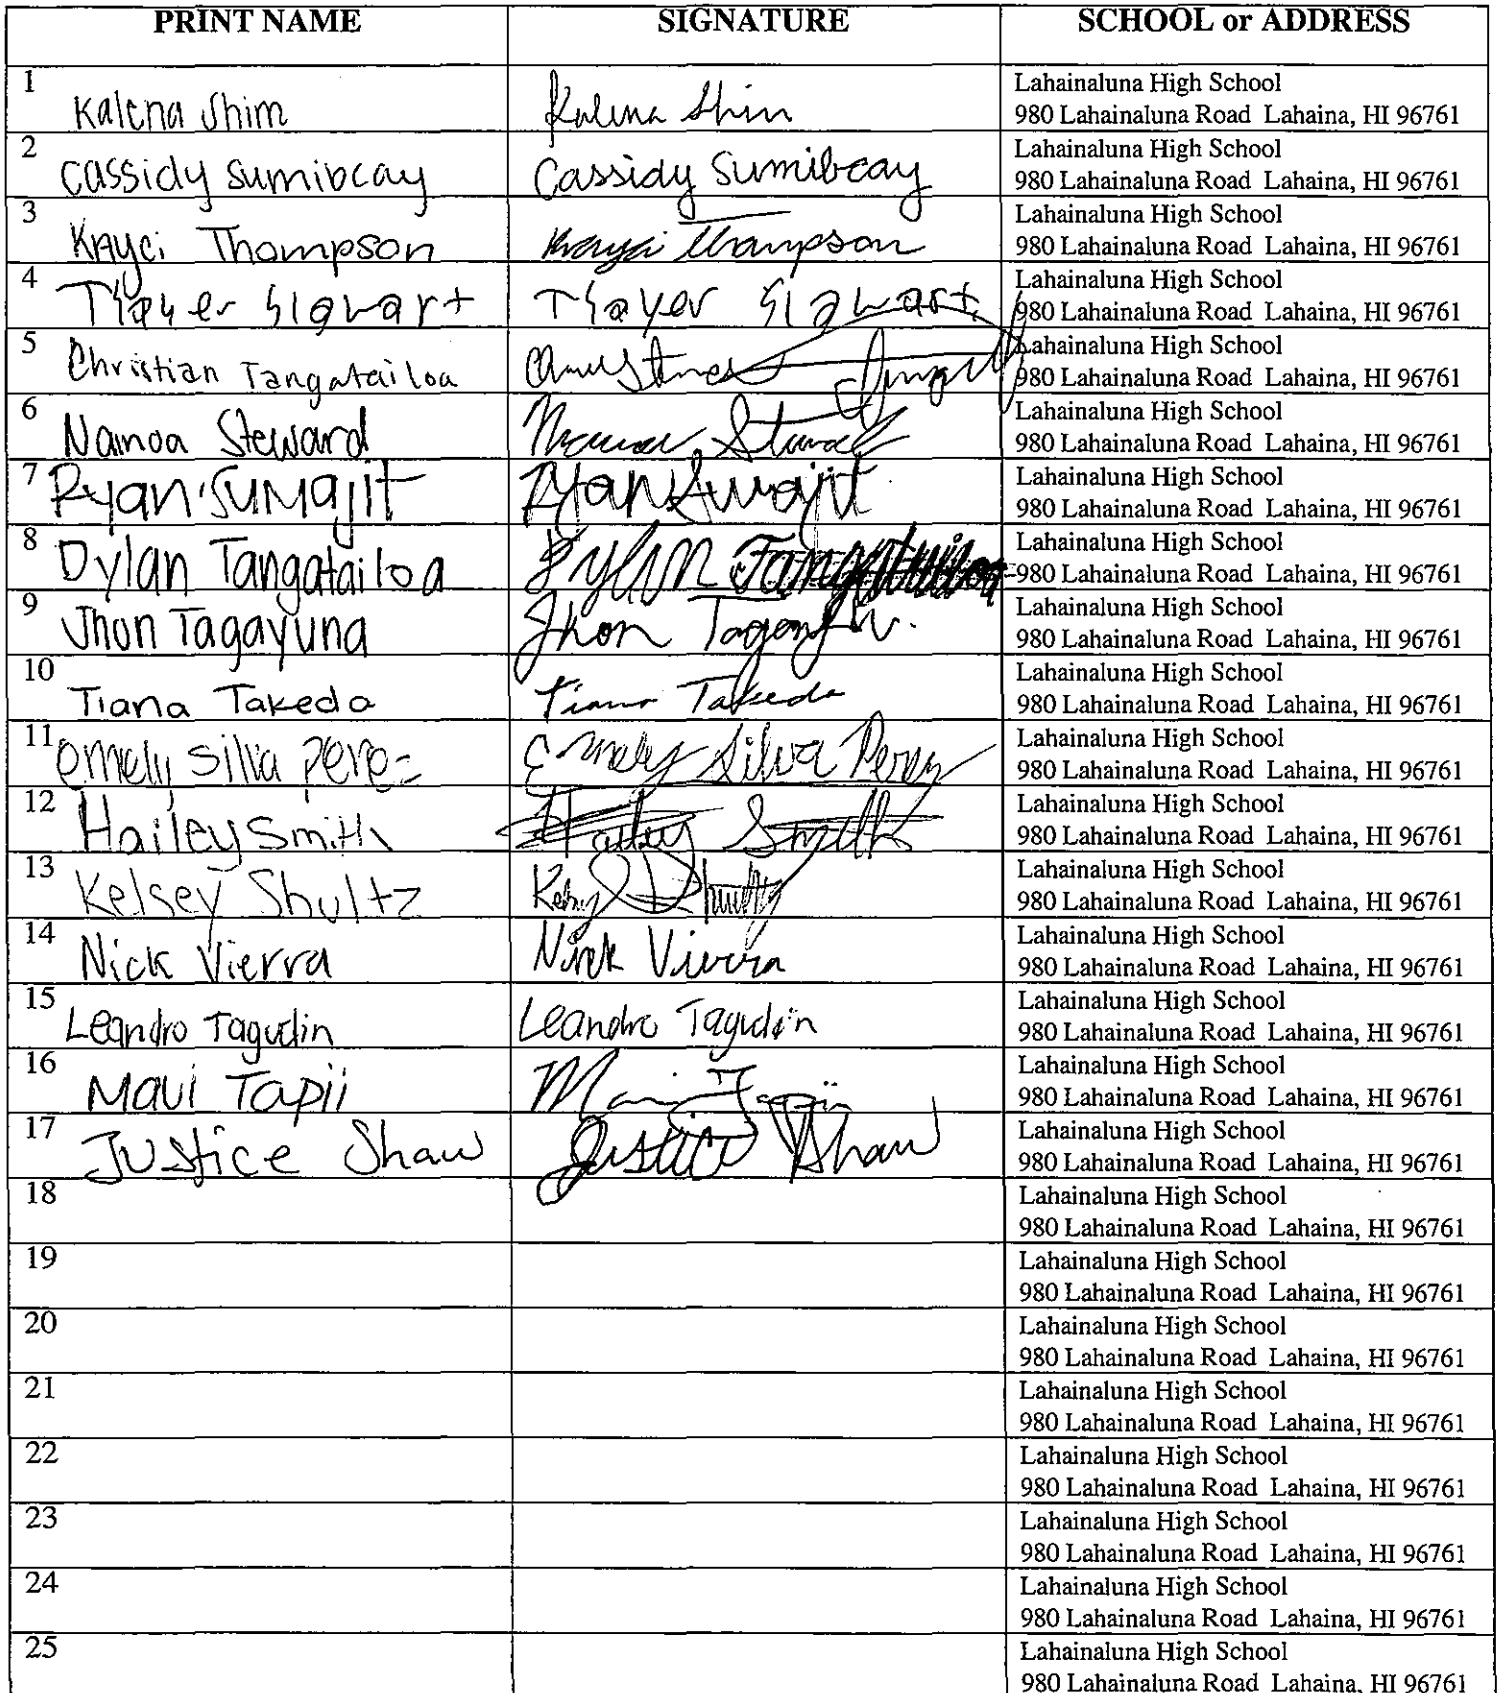 PRINT NAME SIGNATURE SCHOOL or ADDRESS
1 Kalena Shim Kalena Shim Lahainaluna High School
980 Lahainaluna Road Lahaina, HI 96761
2 Cassidy Sumibcay Cassidy Sumibcay Lahainaluna High School
980 Lahainaluna Road Lahaina, HI 96761
3 Kayci Thompson Kayci Thompson Lahainaluna High School
980 Lahainaluna Road Lahaina, HI 96761
4 Thayer Sigwart Thayer Sigwart Lahainaluna High School
980 Lahainaluna Road Lahaina, HI 96761
5 Christian Tangatailoa Lahainaluna High School
980 Lahainaluna Road Lahaina, HI 96761
6 Namoa Steward Lahainaluna High School
980 Lahainaluna Road Lahaina, HI 96761
7 Ryan Sumajit Ryan Sumajit Lahainaluna High School
980 Lahainaluna Road Lahaina, HI 96761
8 Dylan Tangatailoa Dylan Tangatailoa Lahainaluna High School
980 Lahainaluna Road Lahaina, HI 96761
9 Jhon Tagayuna Jhon Lahainaluna High School
980 Lahainaluna Road Lahaina, HI 96761
10 Tiana Takeda Tiana Takeda Lahainaluna High School
980 Lahainaluna Road Lahaina, HI 96761
11 emely silva perez Emely Silva Perez Lahainaluna High School
980 Lahainaluna Road Lahaina, HI 96761
12 Hailey Smith Hailey Smith Lahainaluna High School
980 Lahainaluna Road Lahaina, HI 96761
13 Kelsey Shultz Kelsey Shultz Lahainaluna High School
980 Lahainaluna Road Lahaina, HI 96761
14 Nick Vierra Nick Vierra Lahainaluna High School
980 Lahainaluna Road Lahaina, HI 96761
15 Leandro Tagudin Leandro Tagudin Lahainaluna High School
980 Lahainaluna Road Lahaina, HI 96761
16 Maui Tapii Maui Tapii Lahainaluna High School
980 Lahainaluna Road Lahaina, HI 96761
17 Justice Shaw Justice Shaw Lahainaluna High School
980 Lahainaluna Road Lahaina, HI 96761
18 Lahainaluna High School
980 Lahainaluna Road Lahaina, HI 96761
19 Lahainaluna High School
980 Lahainaluna Road Lahaina, HI 96761
20 Lahainaluna High School
980 Lahainaluna Road Lahaina, HI 96761
21 Lahainaluna High School
980 Lahainaluna Road Lahaina, HI 96761
22 Lahainaluna High School
980 Lahainaluna Road Lahaina, HI 96761
23 Lahainaluna High School
980 Lahainaluna Road Lahaina, HI 96761
24 Lahainaluna High School
980 Lahainaluna Road Lahaina, HI 96761
25 Lahainaluna High School
980 Lahainaluna Road Lahaina, HI 96761